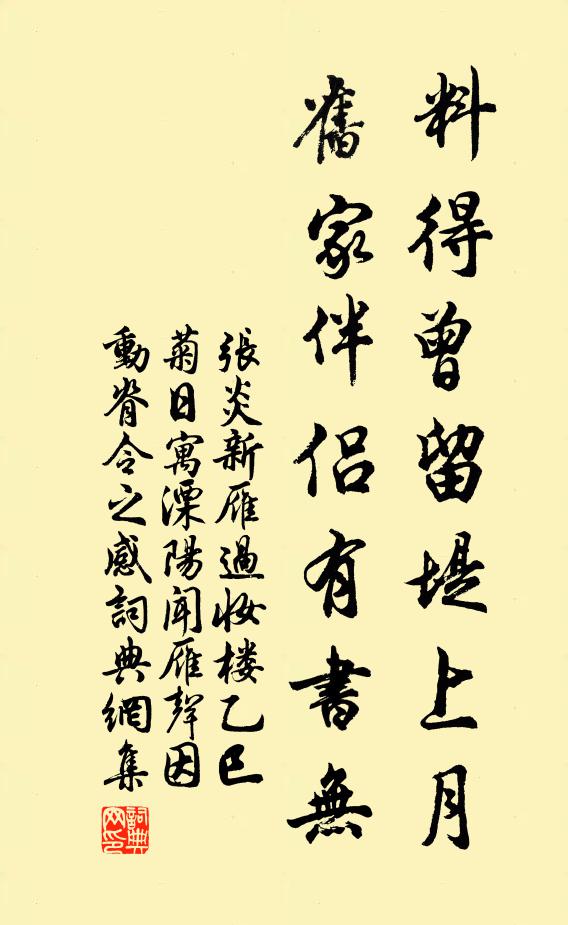 料得曾留堤上月
舊家伴侶有書無
張炎新雁過妝樓乙巳
菊日寓溧陽聞雁聲因
動脊令之感詞典網集
詞典网印